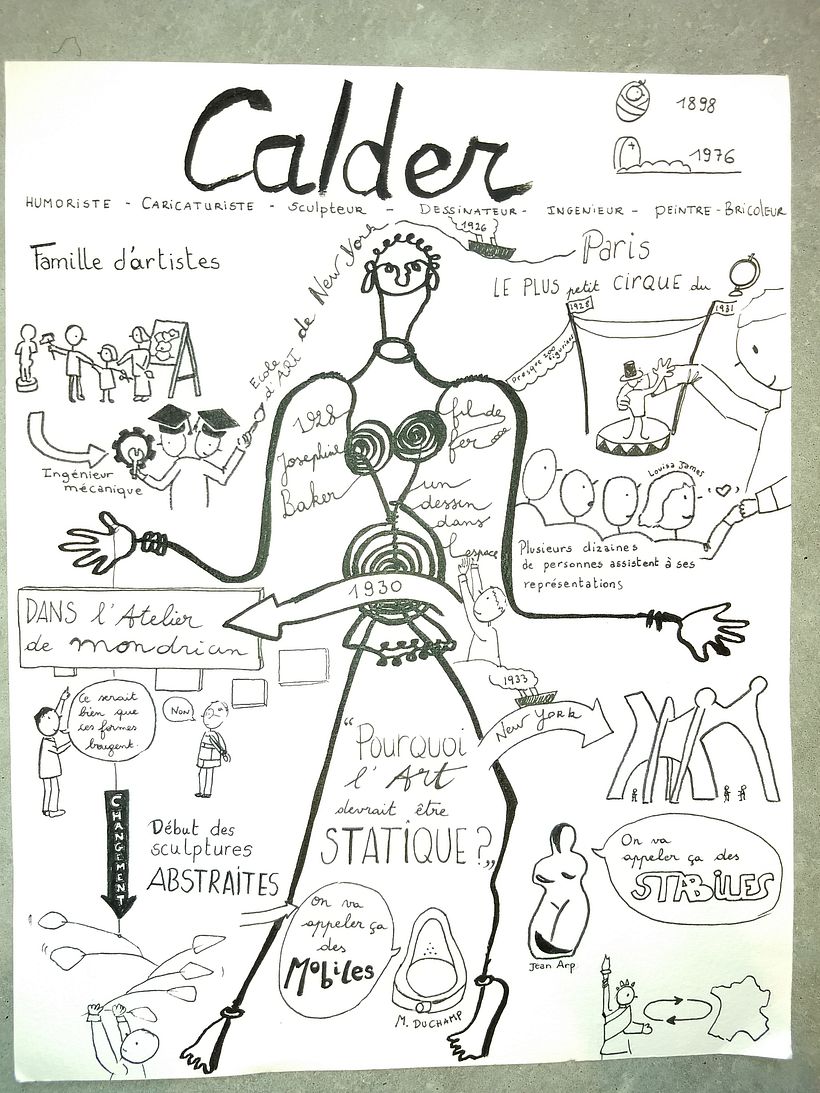 Calder
1898
1976
HUMORISTE - CARICATURISTE - Sculpteur - DESSINATEUR - INGENIEUR - PEINTRE - BRICOLEUR
Famille d'artistes
Ecole
d'ART
de New York
1926
Paris
LE PLUS petit CIRQUE du
1928
1931
Presque 200
figurines
Ingénieur
mécanique
1928
Josephine
Baker
fil de
fer
un
dessin
dans
l'espace
Louisa James
Plusieurs dizaines
de personnes assistent à ses
représentations
1930
DANS l'Atelier
de mondrian
Ce serait
bien que
ces formes
bougent.
NON
1933
New York
"Pourquoi
l'Art
devrait être
STATIQUE?"
CHANGEMENT
Début des
sculptures
ABSTRAITES
On va
appeler ça
des
Mobiles
M. DUCHAMP
On va
appeler ça des
STABILES
Jean Arp